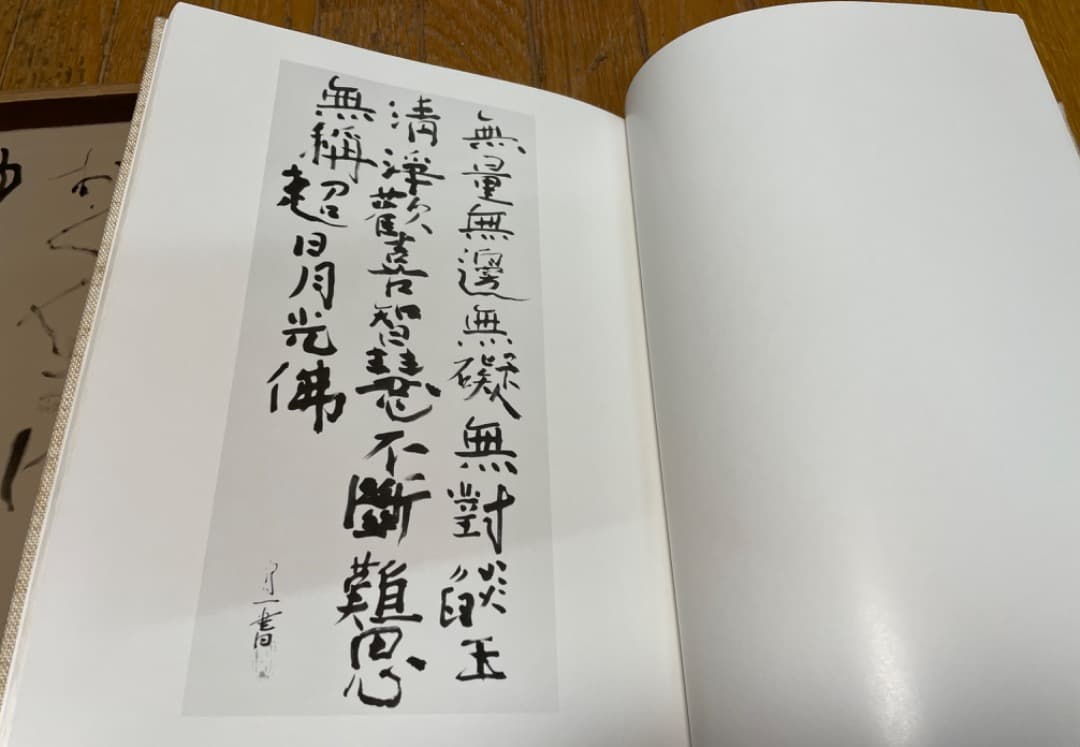 無量無邊無礙無對燄王
清淨歡喜智慧不斷難思
無稱超日月光佛
一書